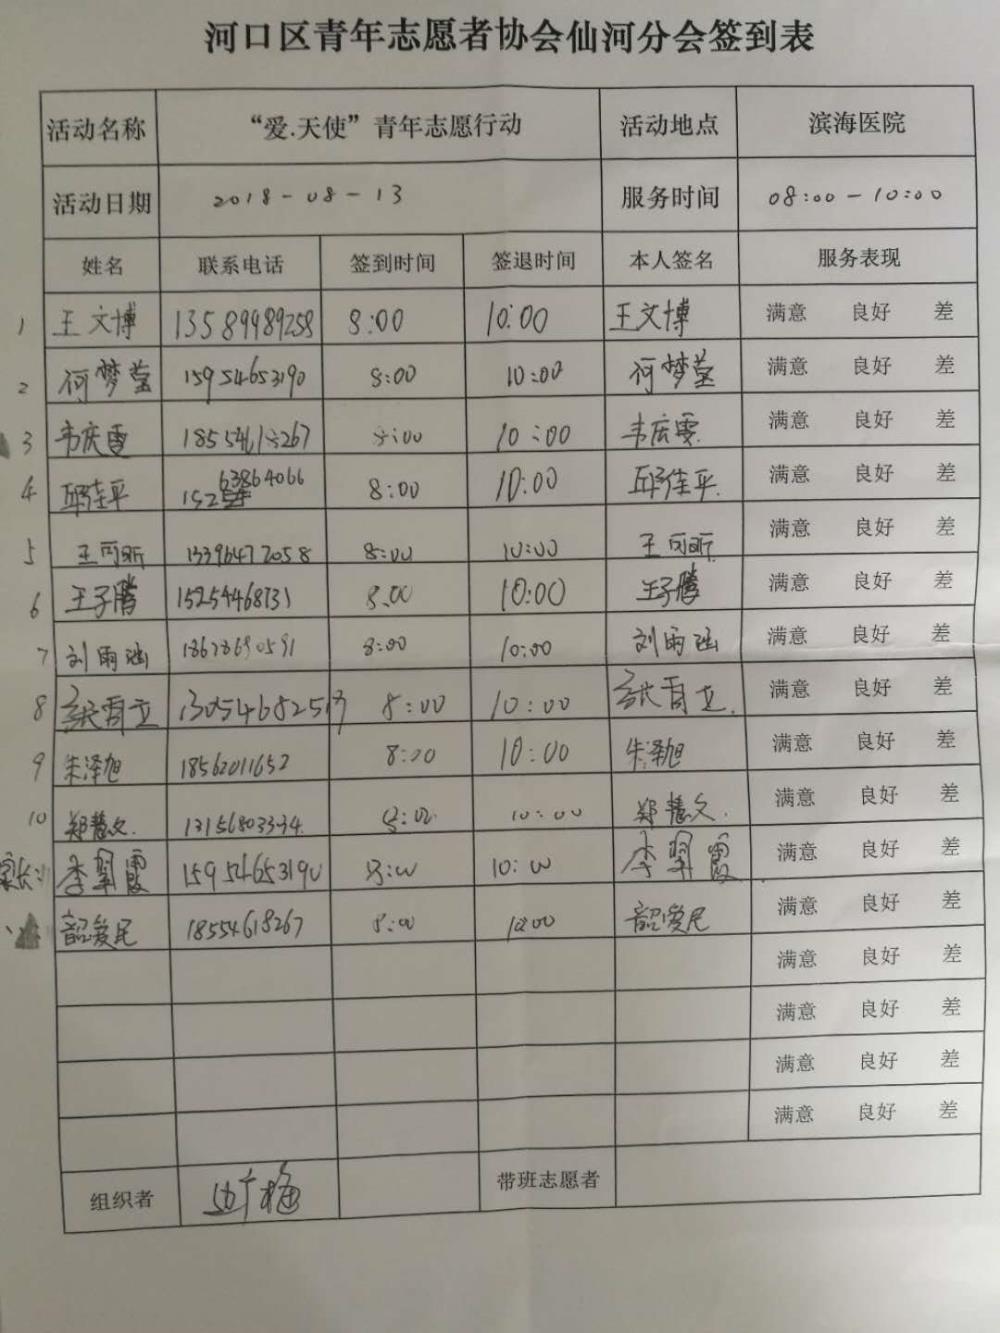 河口区青年志愿者协会仙河分会签到表
活动名称 “爱.天使”青年志愿行动 活动地点 滨海医院
活动日期 2018-08-13 服务时间 08:00-10:00
姓名 联系电话 签到时间 签退时间 本人签名 服务表现
1 王文博 13589989258 8:00 10:00 王文博 满意 良好 差
2 何梦莹 15954653190 8:00 10:00 何梦莹 满意 良好 差
3 韦庆雯 18554618267 8:00 10:00 韦庆雯 满意 良好 差
63864066
4 邱佳平 8:00 10:00 邱佳平 满意 良好 差
5 王可昕 13396472058 8:00 10:00 王可昕 满意 良好 差
6 王子腾 15254468731 8:00 10:00 王子腾 满意 良好 差
7 刘雨涵 18678690591 8:00 10:00 刘雨涵 满意 良好 差
8 8:00 10:00 满意 良好 差
9 朱泽旭 18562011652 8:00 10:00 朱泽旭 满意 良好 差
10 郑慧文 8:00 10:00 郑慧文 满意 良好 差
家长: 李翠霞 15954653190 8:00 10:00 李翠霞 满意 良好 差
韶爱民 18554618267 8:00 10:00 韶爱民 满意 良好 差
满意 良好 差
满意 良好 差
满意 良好 差
满意 良好 差
组织者 带班志愿者